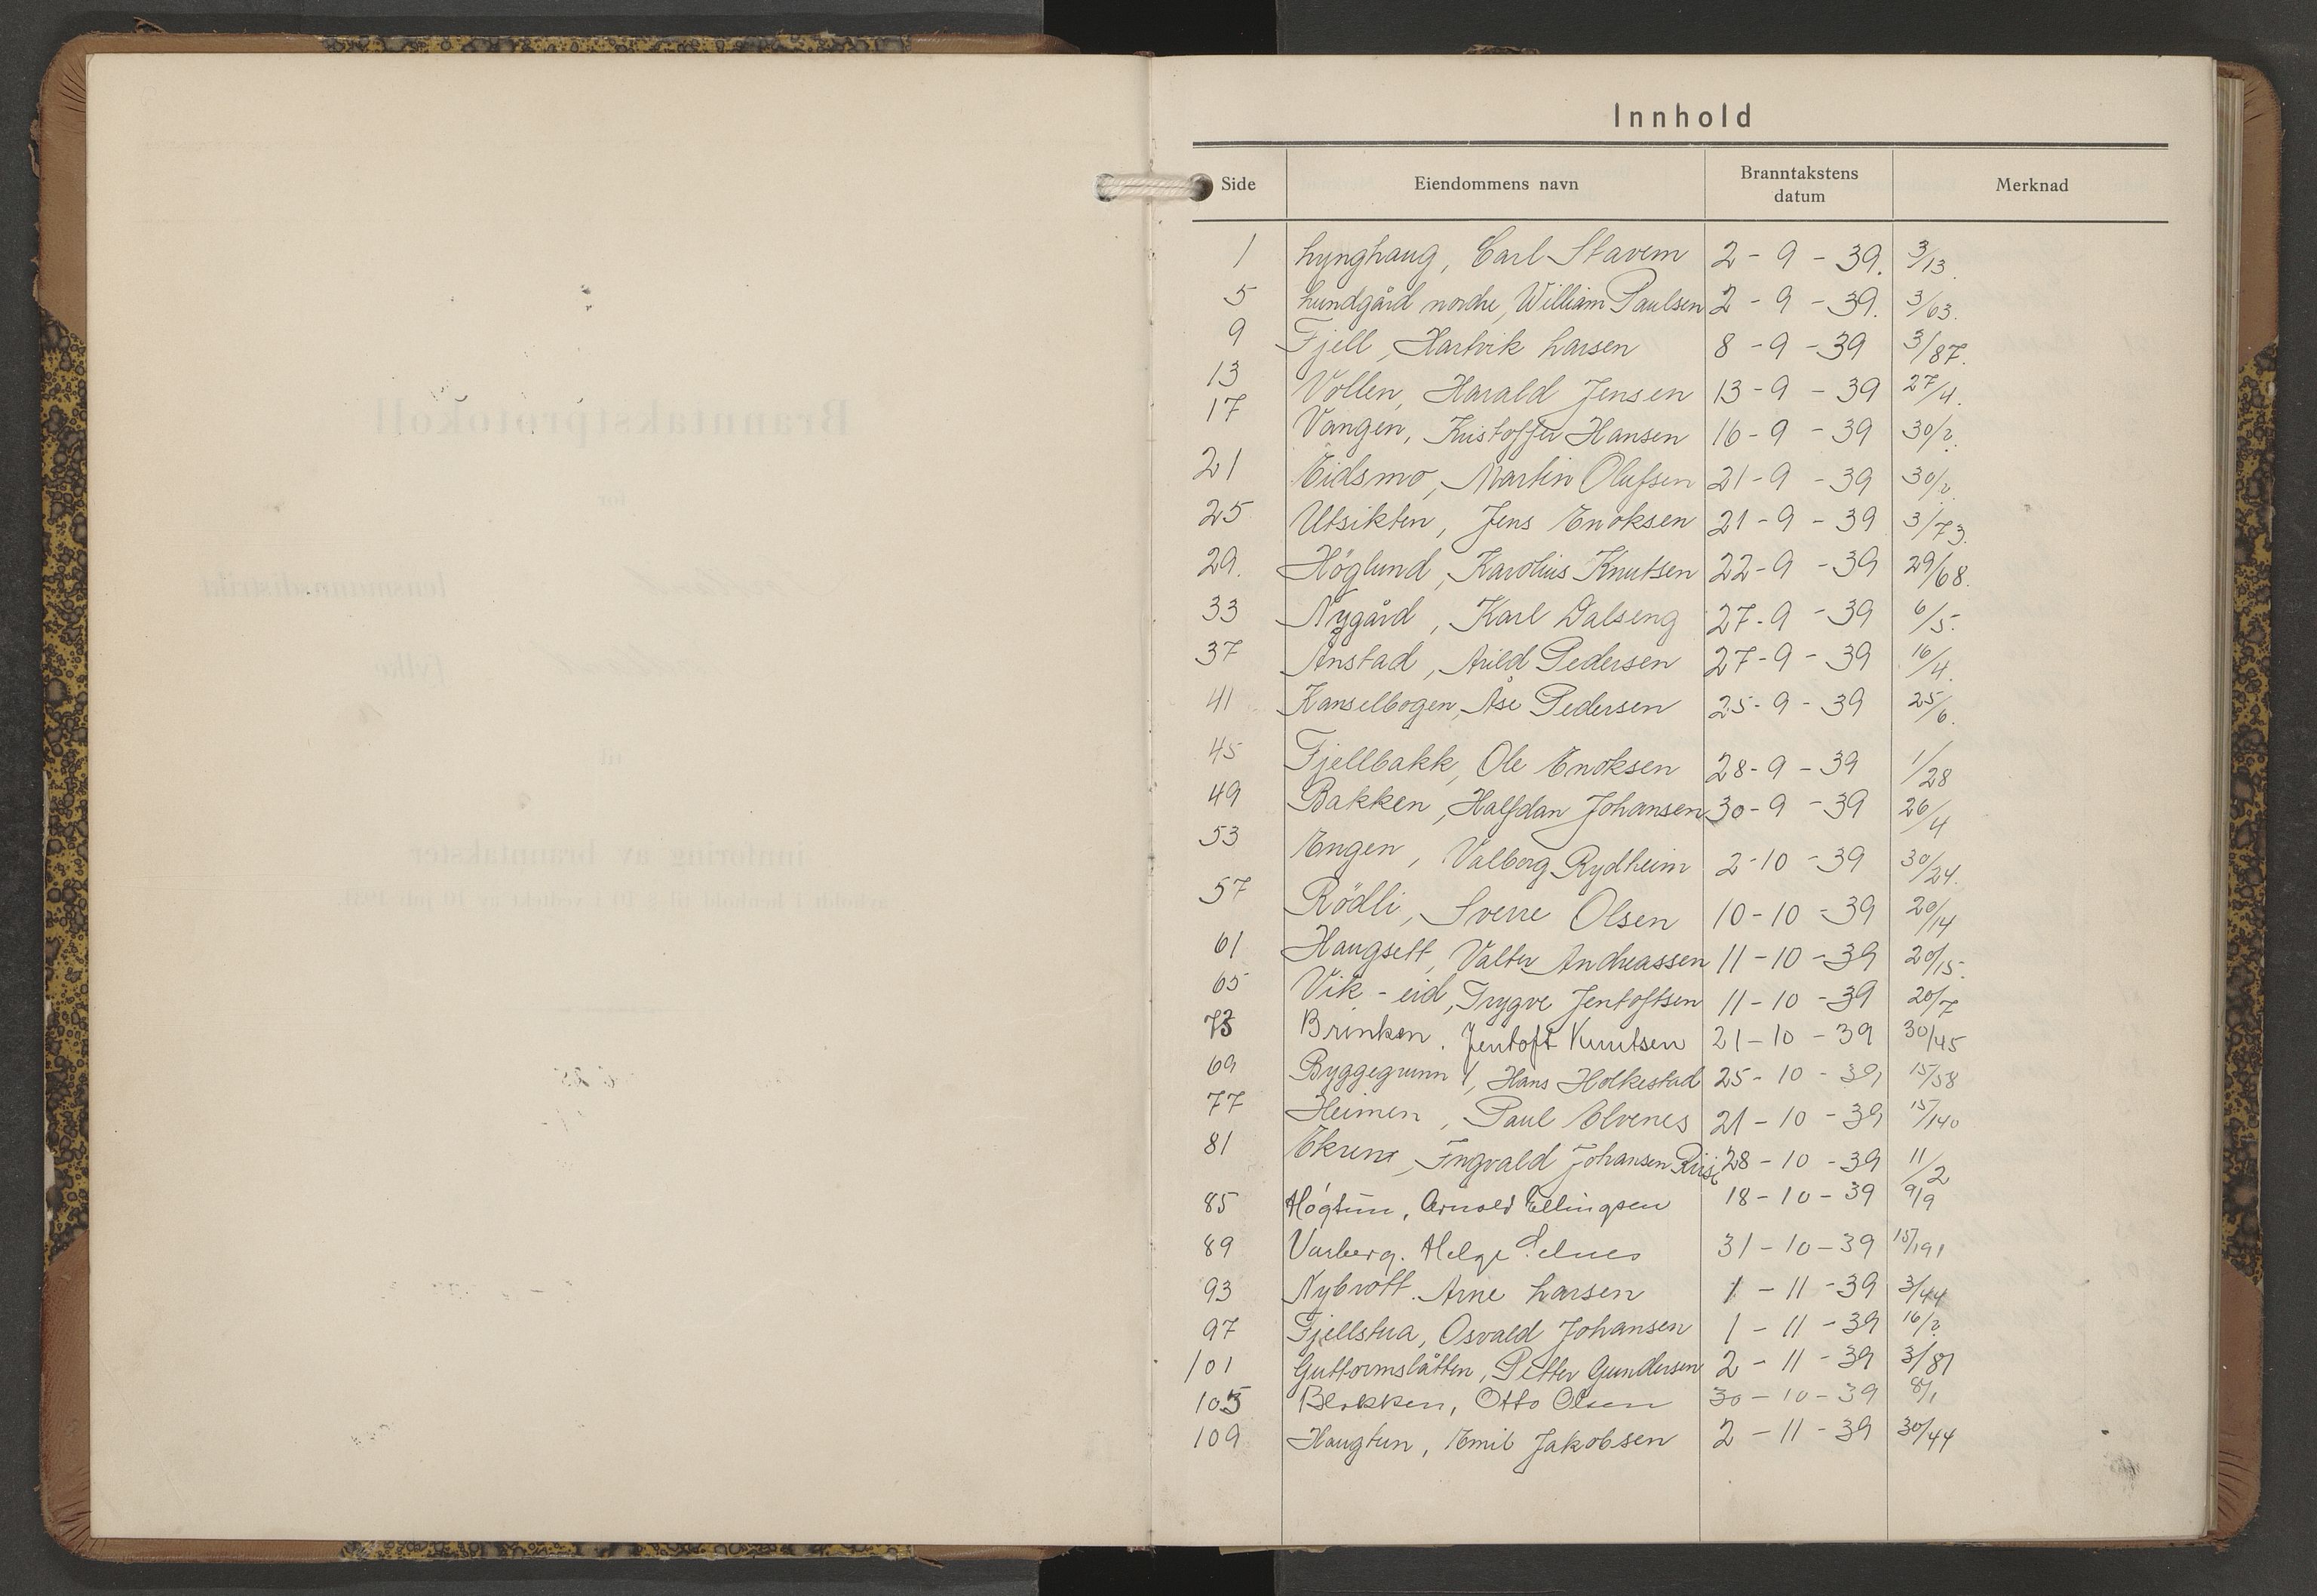 Innhold
Side Eiendommens navn Branntakstens datum Merknad
1 Lynghaug, Carl Stavem 2 - 9 - 39. 3/13.
5 Lundgård nordre, William Paulsen 2 - 9 - 39. 3/63.
9 Fjell, Hartvik Larsen 8 - 9 - 39 3/87.
13 Vollen, Harald Jensen 13 - 9 - 39 27/4.
17 Vangen, Kristoffer Hansen 16 - 9 - 39 30/2.
21 Eidsmo, Martin Olufsen 21 - 9 - 39 30/2.
25 Utsikten, Jens Enoksen 21 - 9 - 39 3/73.
29. Höglund, Karolius Knutsen 22 - 9 - 39 29/68.
33 Nygård, Karl Dalseng 27 - 9 - 39 6/5.
37 Anstad, Arild Pedersen 27 - 9 - 39 16/4.
41 Kanselbogen, Åse Pedersen 25 - 9 - 39 25/6.
45 Fjellbakk, Ole Enoksen 28 - 9 - 39 1/28
49 Bakken, Halfdan Johansen 30 - 9 - 39 26/4
53 Engen, Valborg Rydheim 2 - 10 - 39 30/24.
57 Rödli, Sverre Olsen 10 - 10 - 39 20/14
61 Haugsett, Valter Andreassen 11 - 10 - 39 20/15.
65 Vik - eid, Trygve Jentoftsen 11 - 10 - 39 20/7
73 Brinken. Jentoft Knutsen 21 - 10 - 39 30/45
69 Byggegrunn 1, Hans Holkestad 25 - 10 - 39 15/58
77 Heimen, Paul Elvenes 21 - 10 - 39 15/140
81 Ingvald Johansen 28 - 10 - 39 11/2
85 Högtun, Arnold Ellingsen 18 - 10 - 39 9/9
89 Varberg. Helge 31 - 10 - 39 15/191
93 Nybrott. Arne Larsen 1 - 11 - 39 3/44
97 Fjellstua, Osvald Johansen 1 - 11 - 39 16/2
101 Guttormslåtten, Petter Gundersen 2 - 11 - 39 3/81
105 Otto Olsen 30 - 10 - 39 8/1
109 Haugtun, Emil Jakobsen 2 - 11 - 39 30/44